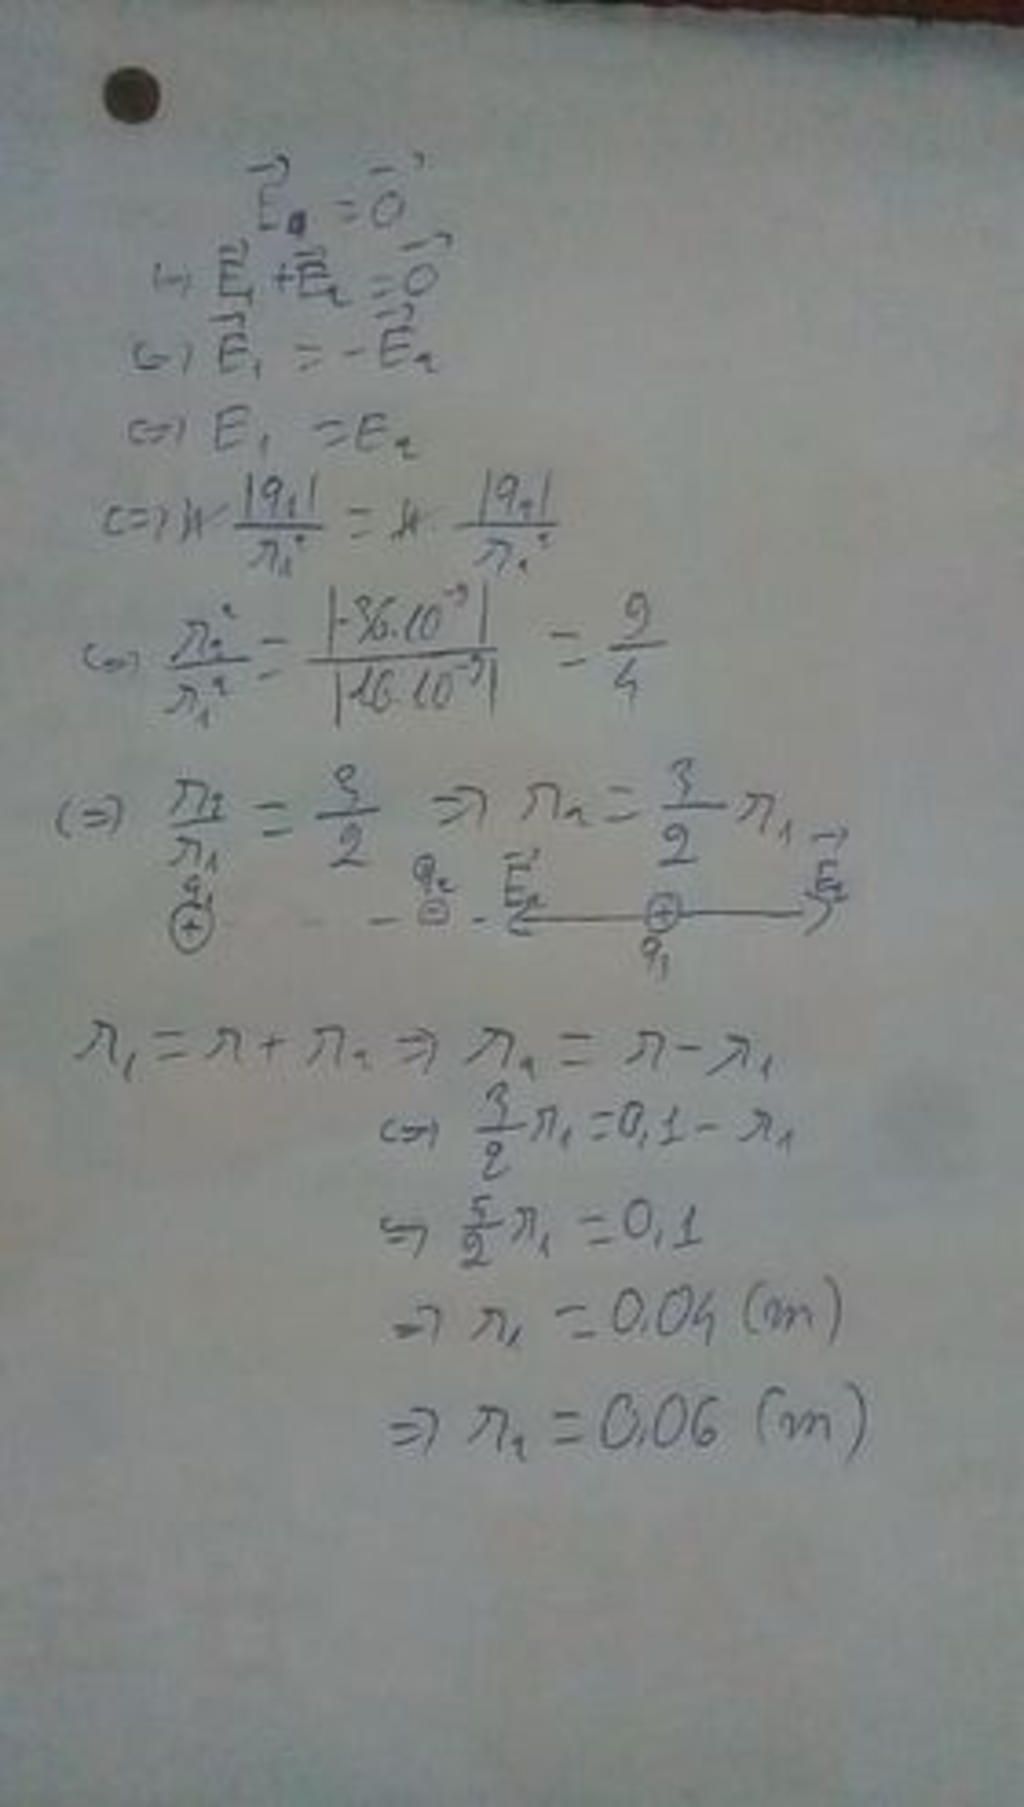 →E = →0
(=) →E₁ + →E₂ = →0
(=) →E₁ = - →E₂
(=) E₁ = E₂
(=) k |q₁|/r₁² = k |q₂|/r₂²
(=) r₂²/r₁² = |-36.10⁻⁹|/|16.10⁻⁹| = 9/4
(=) r₂/r₁ = 3/2 => r₂ = 3/2 r₁
q₁ q₂ →E₂ →E₂
⊕ - ⊖ - ⊕
q₁
r₁ = r + r₂ => r₂ = r - r₁
(=) 3/2 r₁ = 0,1 - r₁
=> 5/2 r₁ = 0,1
=> r₁ = 0,04 (m)
=> r₂ = 0,06 (m)